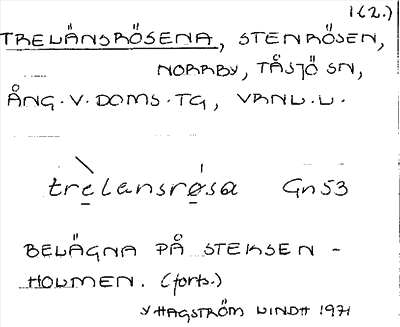 1(2.)
TRELÄNSRÖSENA, STENRÖSEN,
NORRBY, TÅSJÖ SN,
ÅNG.V.DOMS.TG, VRNL.L.
trelansrøsa Gn 53
BELÄGNA PÅ STEKSEN-
HOLMEN. (forts.)
Y HAGSTRÖM LINDH 1971